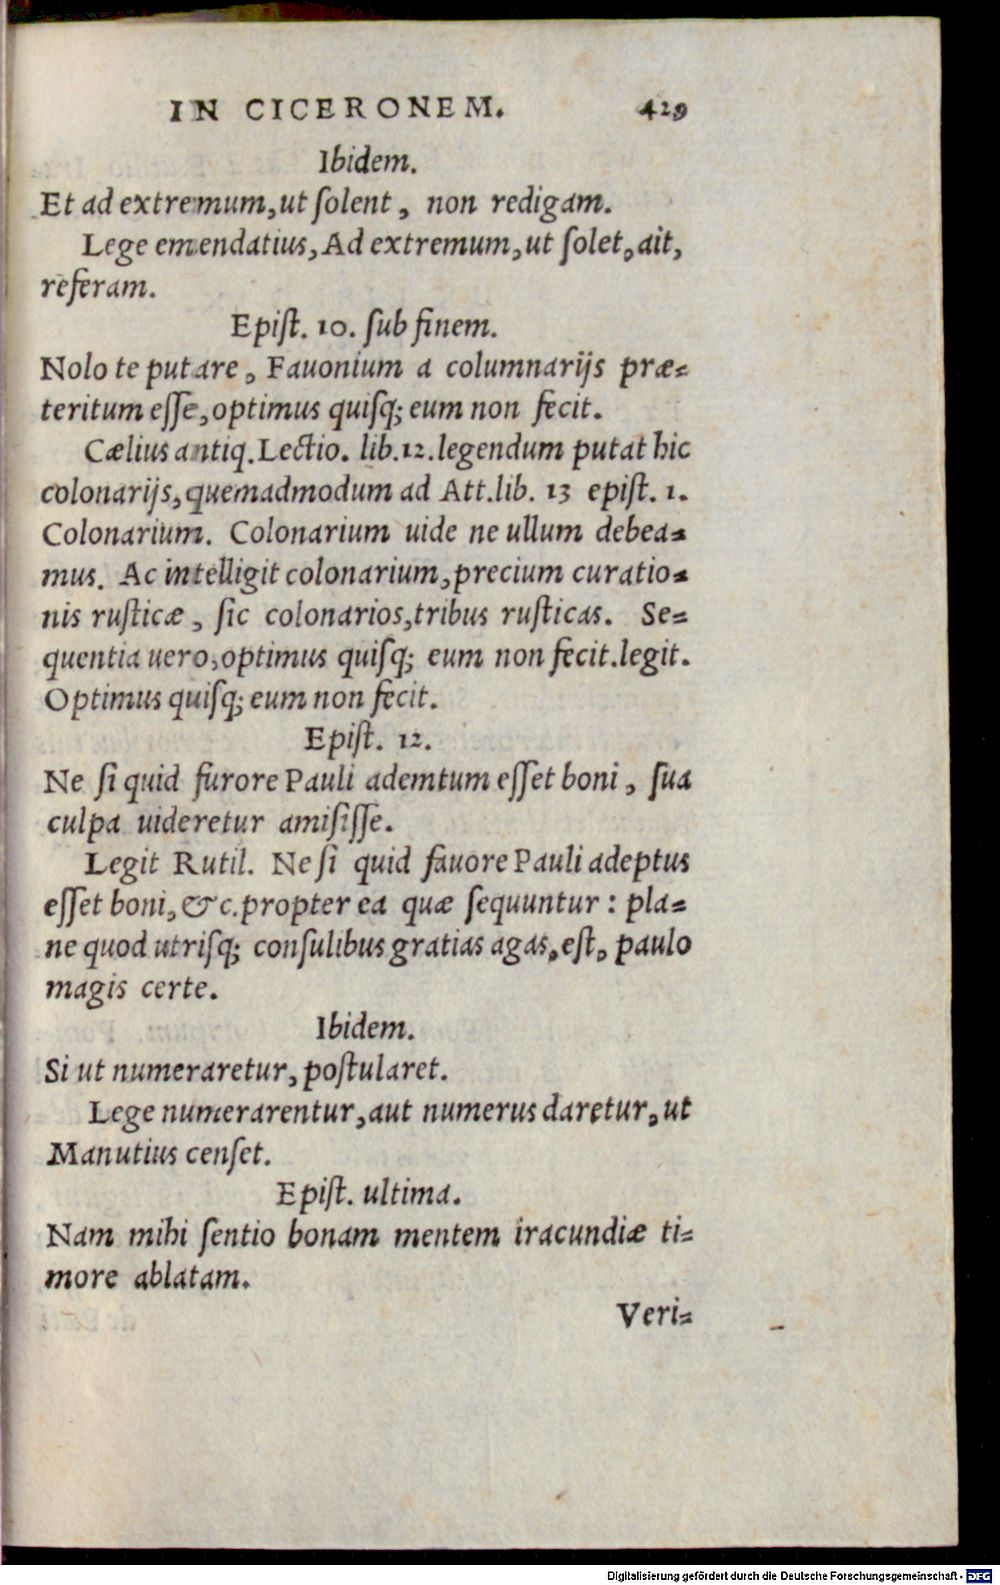 IN CICERONEM. 429
Ibidem.
Et ad extremum, ut ſolent, non redigam.
Lege emendatius, Ad extremum, ut ſolet, ait,
referam.
Epiſt. 10. ſub finem.
Nolo te putare, Fauonium a columnarijs præ-
teritum eſſe, optimus quiſq; eum non fecit.
Cælius antiq. Lectio. lib. 12. legendum putat hic
colonarijs, quemadmodum ad Att. lib. 13 epiſt. 1.
Colonarium. Colonarium uide ne ullum debea-
mus. Ac intelligit colonarium, precium curatio-
nis ruſticæ, ſic colonarios, tribus ruſticas. Se-
quentia uero, optimus quiſq; eum non fecit. legit.
Optimus quiſq; eum non fecit.
Epiſt. 12.
Ne ſi quid furore Pauli ademtum eſſet boni, ſua
culpa uideretur amiſiſſe.
Legit Rutil. Ne ſi quid fauore Pauli adeptus
eſſet boni, &c. propter ea quæ ſequuntur: pla-
ne quod utriſq; conſulibus gratias agas, eſt, paulo
magis certe.
Ibidem.
Si ut numeraretur, poſtularet.
Lege numerarentur, aut numerus daretur, ut
Manutius cenſet.
Epiſt. ultima.
Nam mihi ſentio bonam mentem iracundiæ ti-
more ablatam.
Veri-
Digitalisierung gefördert durch die Deutsche Forschungsgemeinschaft - DFG